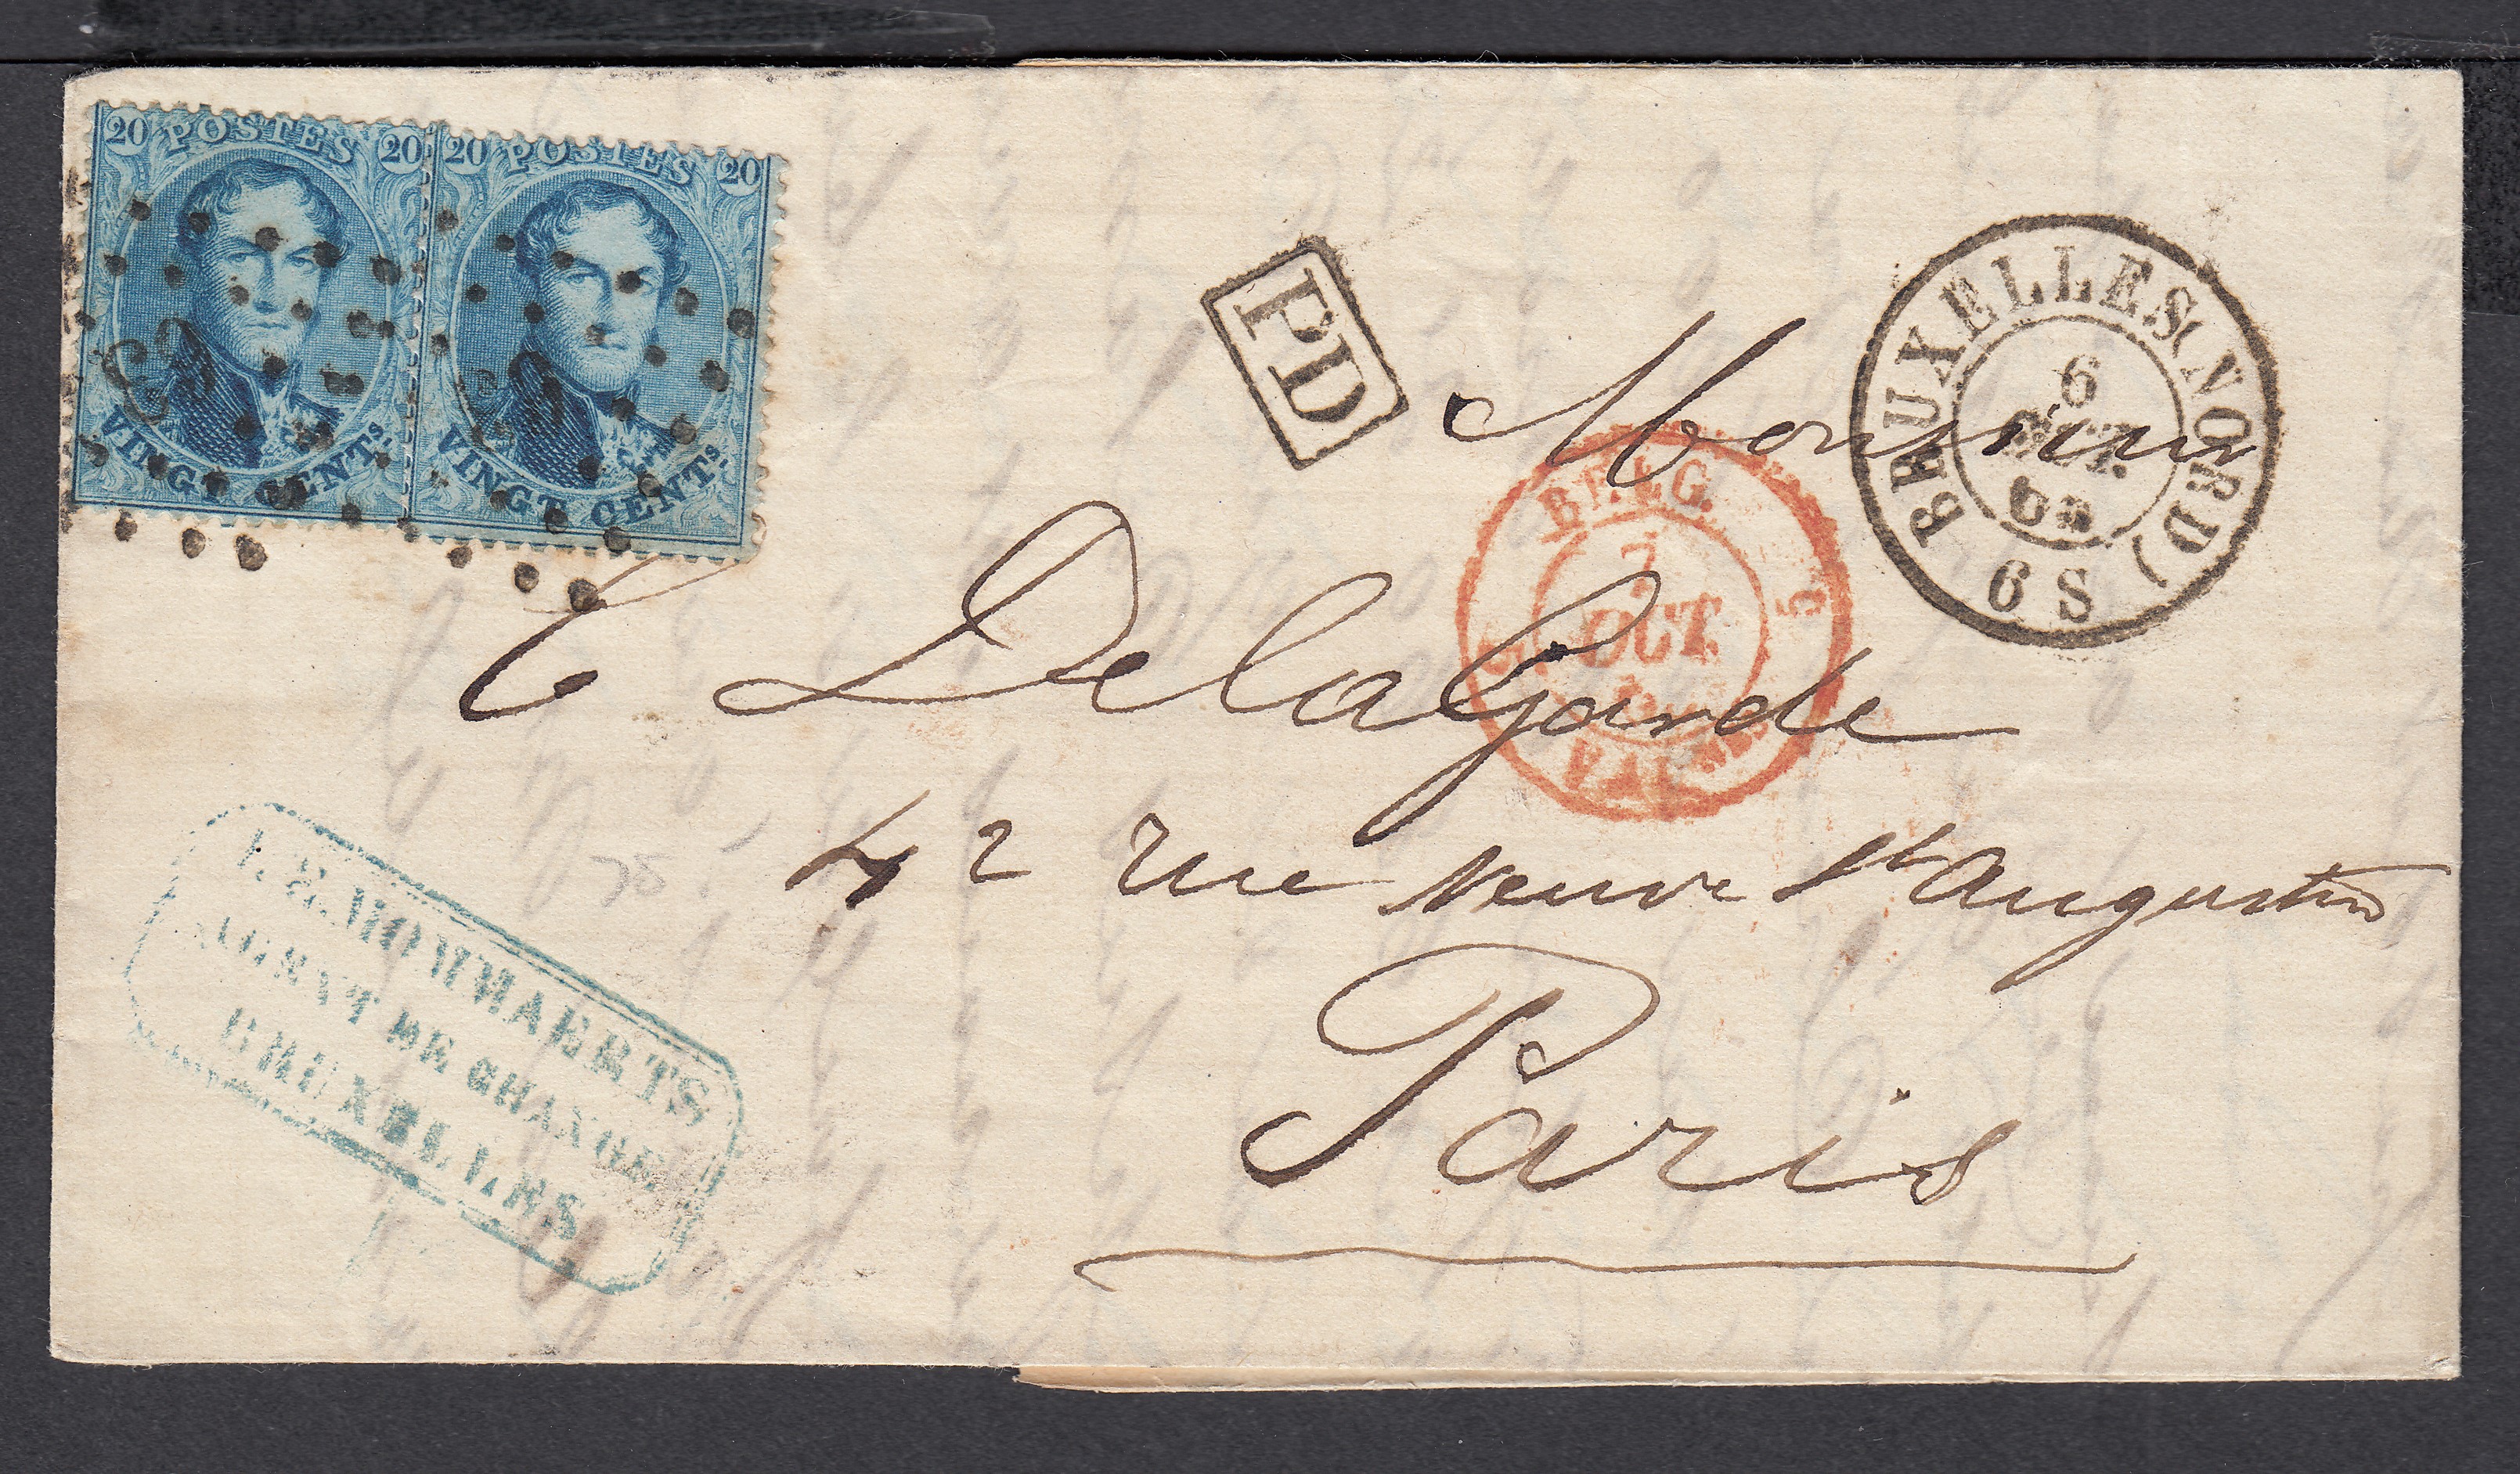 20 POSTES 20
VINGT CENTS.
20 POSTES 20
VINGT CENTS.
PD
BRUXELLES (NORD)
6
OCT.
65
6 S
BELG.
7
OCT.
5 5
Monsieur
E DelaGarde
42 rue Neuve St Augustin
Paris
MOMMAERTS
AGENT DE CHANGE
BRUXELLES